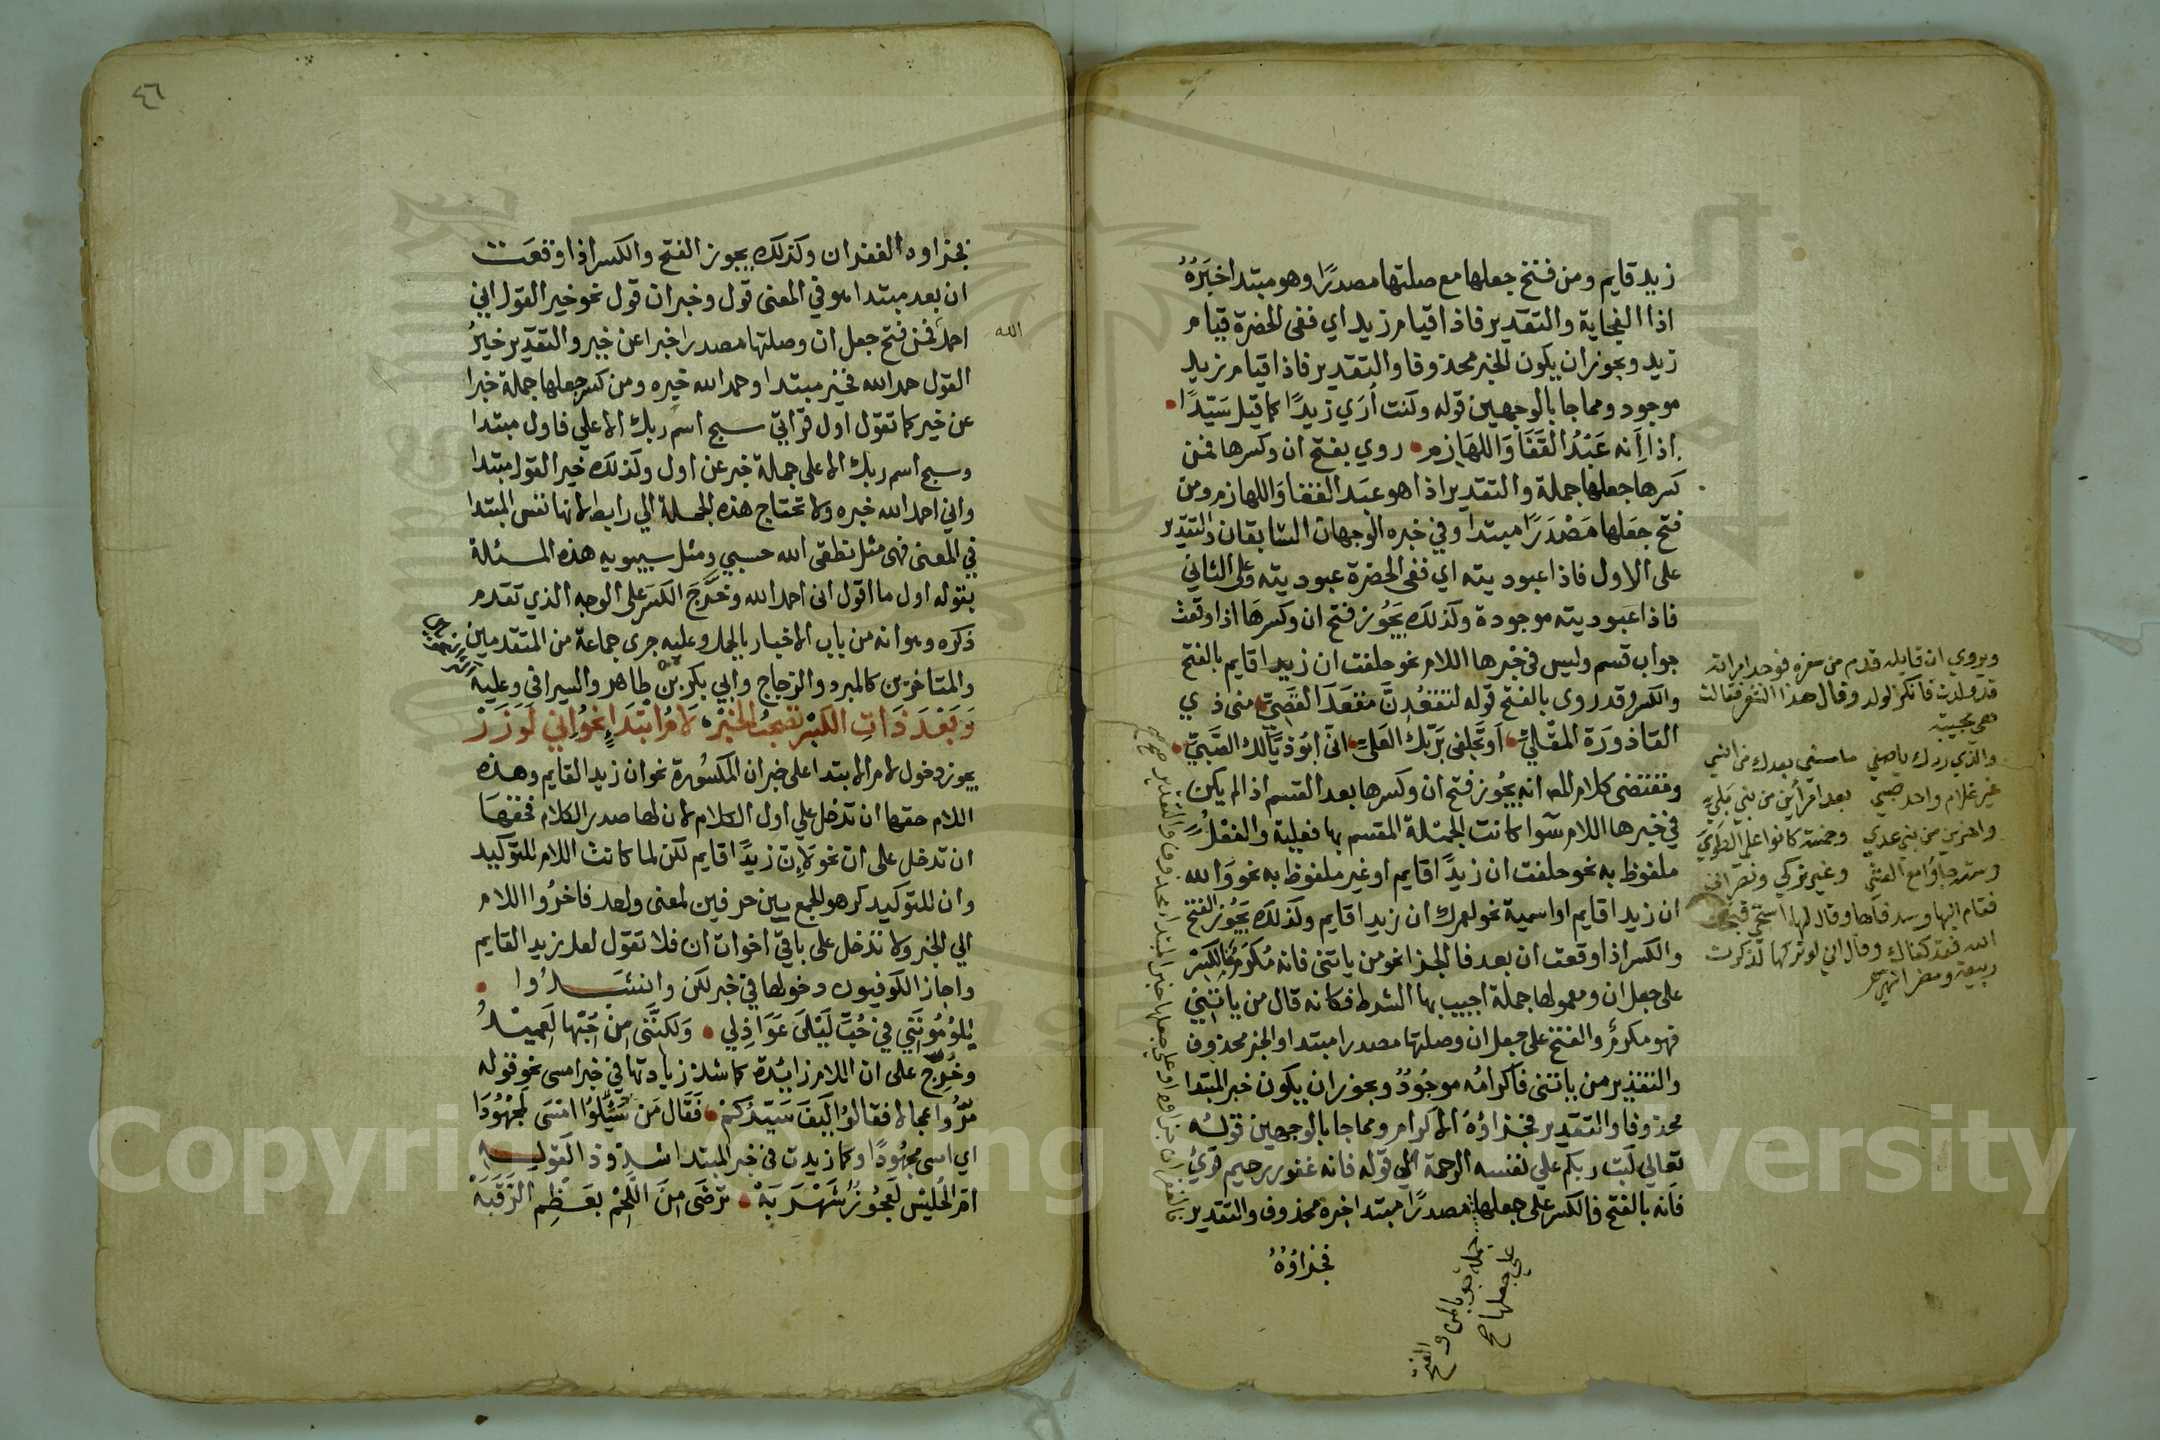 زيد قايم ومن فتح جعلها مع صلتها مصدرًا وهو مبتدا خبَرُهُ
اذا الفجاية والتقدير فاذا قيام زيد اي ففى الحضرة قيام
زيد ويجوز ان يكون الخبر محذوفا والتقدير فاذا قيام زيد
موجود ومما جا بالوجهين قوله وكنت أُرَي زيدًا كما قيل سَيّدًا
اذا اِنه عَبْدُ القَفَا وَاللهَازم روي بفتح ان وكسرها فمن
كسرها جعلها جملة والتقدير اذا هو عبَد القفا وَاللهازم ومن
فتح جعَلها مَصْدَرًا مبتدا وفي خبره الوجهان السابقان والتقدير
على الاول فاذا عبوديته اي ففى الحضرة عبوديته وعلى الثاني
فاذا عبوديته موجودة وكذلك يَجُوز فتح ان وكسرهَا اذا وقعت
جواب قسم وليس في خبرها اللام نحو حلفت ان زيدا قايم بالفتح
والكسر وقد روى بالفتح قوله لتقعُدِنَّ مَقعَدَ القَصِيّ منى ذي
القاذورَة المقليّ اوتحلفى بَرَبّك العَلىّ انّ ابُوذيَّالك الصَّبيّ
ومقتضى كلام المص انه يجُوز فتح ان وكسرها بعد القسم اذا لم يكن
في خبرها اللام سَوا كانت الجمْلة المقسم بها فعلية والفعْلُ
ملفوظ به نحو حلفت ان زيدًا قايم او غير ملفوظ به نحو وَالله
ان زيدا قايم او اسمية نحو لعمرك ان زيدا قايم وكذلك يَجُوز الفتح
والكسر اذا وقعت ان بعد فا الجزا نحو من ياتنى فانه مُكرَمٌ فالكسْر
على جعل ان ومعمولها جملة اجيب بها الشرط فكانه قال من ياتنى
فهو مكرمٌ والفتح على جعل ان وصلتها مصدرا مبتدا والخبر محذوف
والتقدير من ياتنى فاكرامُه موجُودٌ ويجوز ان يكون خبر المبتدا
محذوفا والتقدير فجزاؤهُ الاكرام ومما جا بالوجهين قولُه
تعالي كَتب ربكم علي نفسه الرحمة الي قوله فانه غفور رحيم قرئ
فانه بالفتح فالكسر على جعلها مصدرًا مبتدا خبره محذوف والتقدير
فجزاؤُهُ
على جعلها
جملة جوابا
والفتح
صح
ويروي ان قايله قدم من سفره فوجد امراته
قد ولدت فانكر الولد وقال هذا الشعر فقالت
هى مجيبته
والذي ردك ياصفي ما مسني بعدك من انسي
غير غلام واحد صبي بعد امرأين من بني بَلي
واخرين من بني عدي وخمسة كانوا على الطوي
وستة جاؤا مع العشى وغير تركي ونصراني
فقام اليها وسد فاها وقال لها اسكتي قبحك
الله فقد كفاك وقال اني لو تركتها لذكرت
ربيعة ومضر انتهى
٤٦
فجزاوه الغفران وكذلك يجوز الفتح والكسر اذا وقعَت
ان بعد مبتدا هو في المعنى قول وخبر ان قول نحو خير القول اني
احمد فمن فتح جعل ان وصلتها مصدرا خبرا عن خير والتقدير خيرُ
الله
القول حمد الله فخير مبتدا وحمد الله خبره ومن كسر جعلها جملة خبرا
عن خير كما تقول اول قراتي سبح اسمَ ربك الاعلي فاول مبتدا
وسبح اسم ربك الاعلى جملة خبر عن اول وكذلك خير القول مبتدا
واني احمد الله خبره ولا تحتاج هذه الجملة الي رابط لانها نفس المبتدا
في المعنى فهى مثل نطقى الله حسبي ومثل سيبويه هذه المسئلة
بقوله اول ما اقول انى احمد الله وخَرَّجَ الكسَر على الوجه الذي تقدم
ذكره وهو انه من باب الاخبار بالجمل وعليه جرى جماعة من المتقدمين
والمتاخرين كالمبرد والزجاج وابي بكر بن طاهر والسيرافي وعليه
وَبَعْدَ ذَاتِ الكَسْرِ تصْحبُ الخَبَرْ لَامُ ابْتدَاءٍ نحوُ إني لَوَزَرْ
يجوز دخول لام الابتدا على خبر ان المكسُورة نحو ان زيدا لقايم وهذه
اللام حقها ان تدخل علي اول الكلام لان لها صدر الكلام فحقهَا
ان تدخل على ان نحو لَاِن زيدًا قايم لكن لما كانت اللام للتوكيد
وان للتوكيد كرهوا الجمع بين حرفين لمعنى واحد فاخرُوا اللام
الي الخبر ولا تدخل على باقى اخوات ان فلا تقول لعل زيدا لقايم
واجاز الكوفيون دخولها في خبر لكن وانشَدُوا
يلوُمُوننَي في حُبّ لَيْلىَ عَوَاذِلي وَلَكنَّنى مِنْ حُبّها لَعَميْدُ
وخُرّجَ على ان اللام زائدة كما شذ زيادتها في خبر امسى نحو قوله
مَرُّوا عجالا فقالوُا كيَفَ سَيّدُكمْ فَقَال مَن سُئِلوُا امْسَى لمَجْهُوْدَا
اي امسى مجهُودًا وكما زيدت في خبر المبتدا شذوذا كقوله
امّ الحُليْسِ لَعَجُوزٌ شَهْرَبَهْ ترْضَى مِنَ اللَّحْمِ بعَظْمِ الرَّقَبَهْ